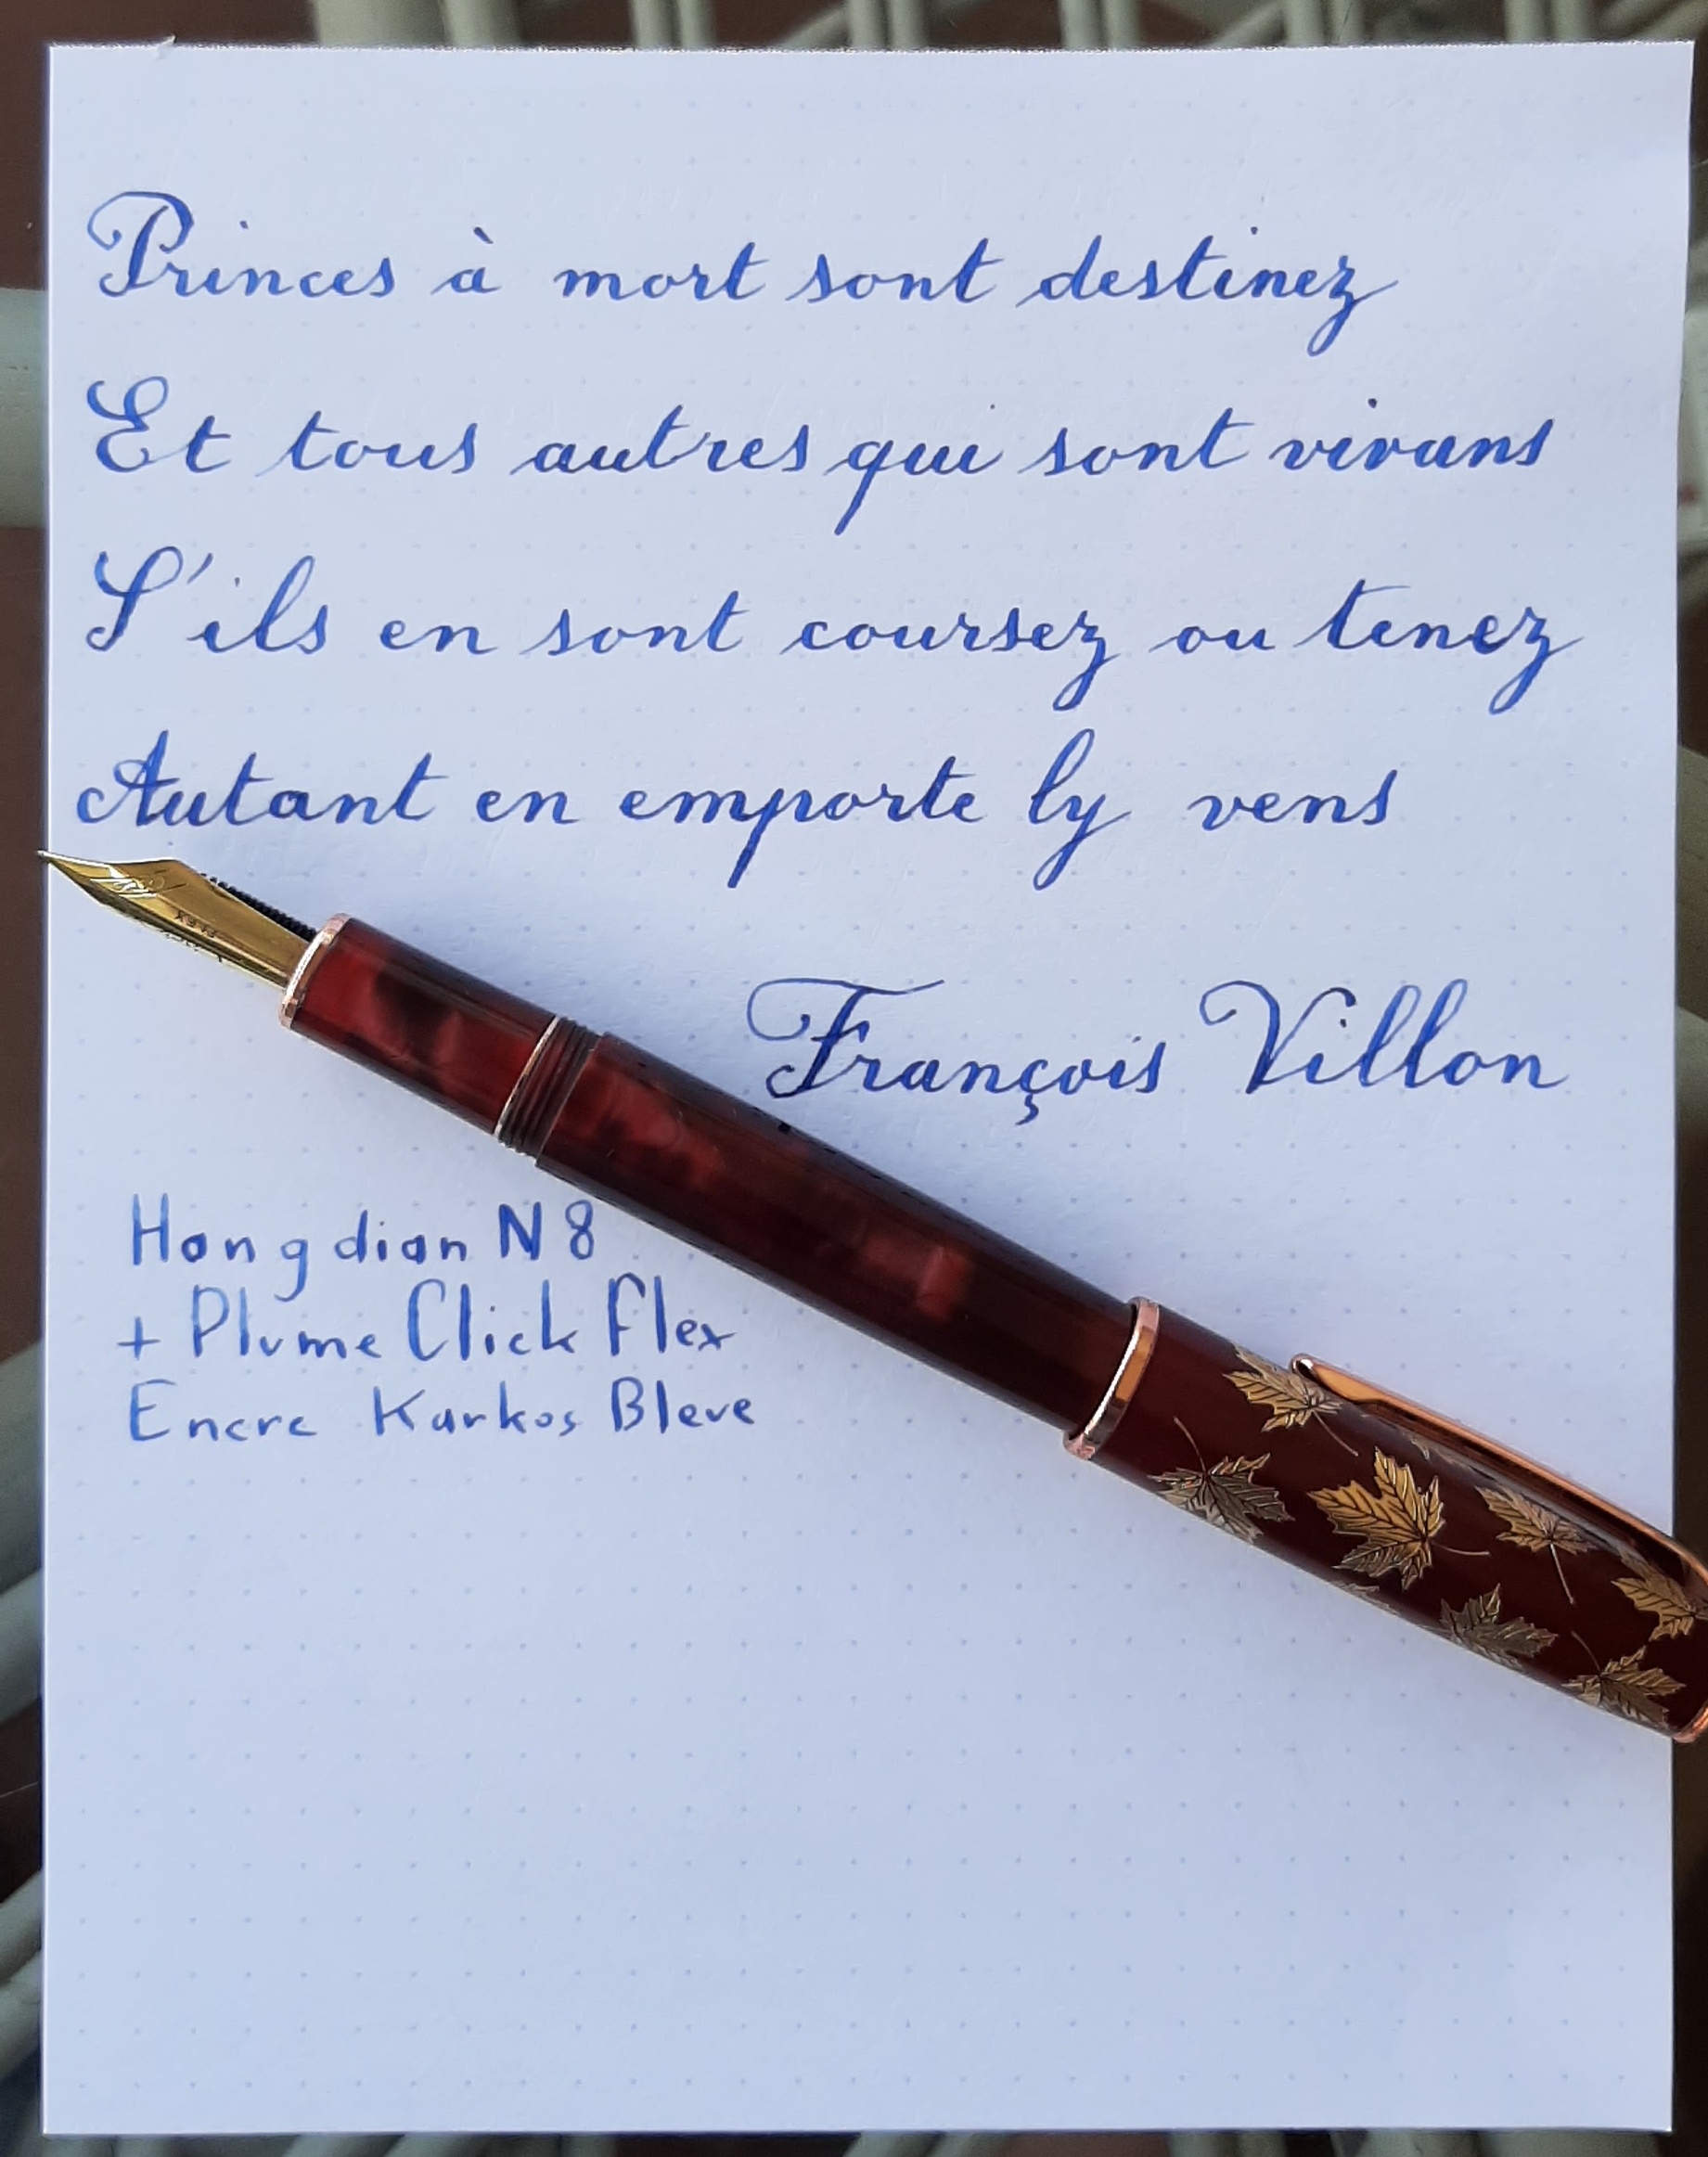 Princes à mort sont destinez
Et tous autres qui sont vivans
S'ils en sont coursez ou tenez
Autant en emporte ly vens
François Villon
Hongdian N8
+ Plume Click Flex
Encre Karkos Bleue